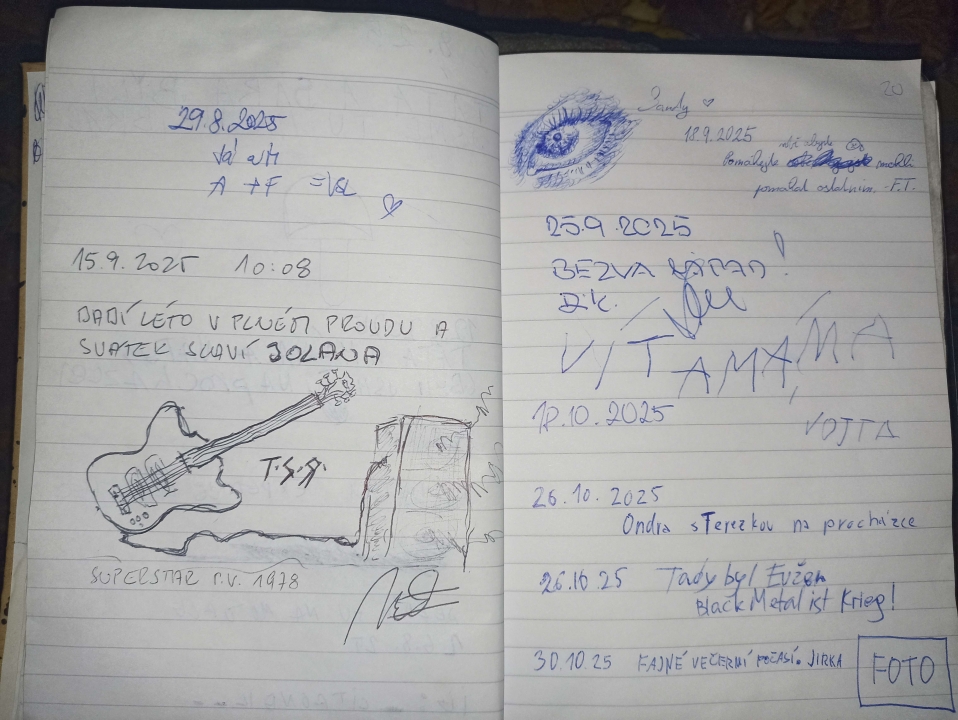 29.8.2025
A + F = VSL
15.9.2025 10:08
BABÍ LÉTO V PLNÉM PROUDU A
SVATEK SLAVÍ JOLANA
T.S.A.
SUPERSTAR R.V. 1978
20
Sandy
18.9.2025
Pomáhejte mohli
pomáhat ostatním. -F.T.
25.9.2025
BEZVA NÁPAD!
DÍK.
VÍT A MÁMA
12.10.2025
VOJTA
26.10.2025
Ondra s Terezkou na procházce
26.10.25 Tady byl Evžen
Black Metal ist Krieg!
30.10.25 FAJNÉ VEČERNÍ POČASÍ. JIRKA
FOTO